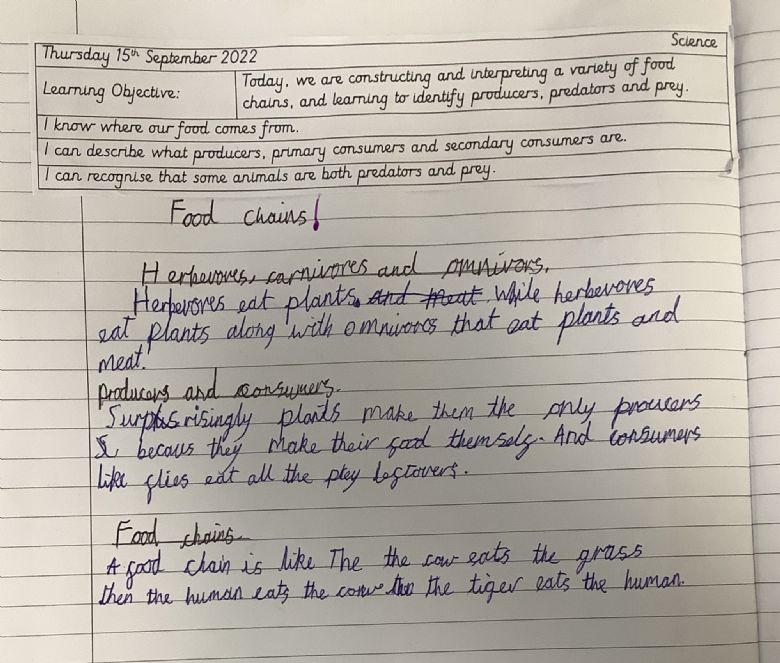 Thursday 15th September 2022
Science
Learning Objective:
Today, we are constructing and interpreting a variety of food
chains, and learning to identify producers, predators and prey.
I know where our food comes from.
I can describe what producers, primary consumers and secondary consumers are.
I can recognise that some animals are both predators and prey.
Food chains!
Herbevores, carnivores and omnivors.
Herbevores eat plants. and meat. While herbevores
eat plants along with omnivores that eat plants and
meat.
producers and consumers.
Surprisingly plants make them the only proucers
becaus they make their food themself. And consumers
like flies eat all the pley leftovers.
Food chains
A food chain is like The the cow eats the grass
then the human eats the cow the the tiger eats the human.